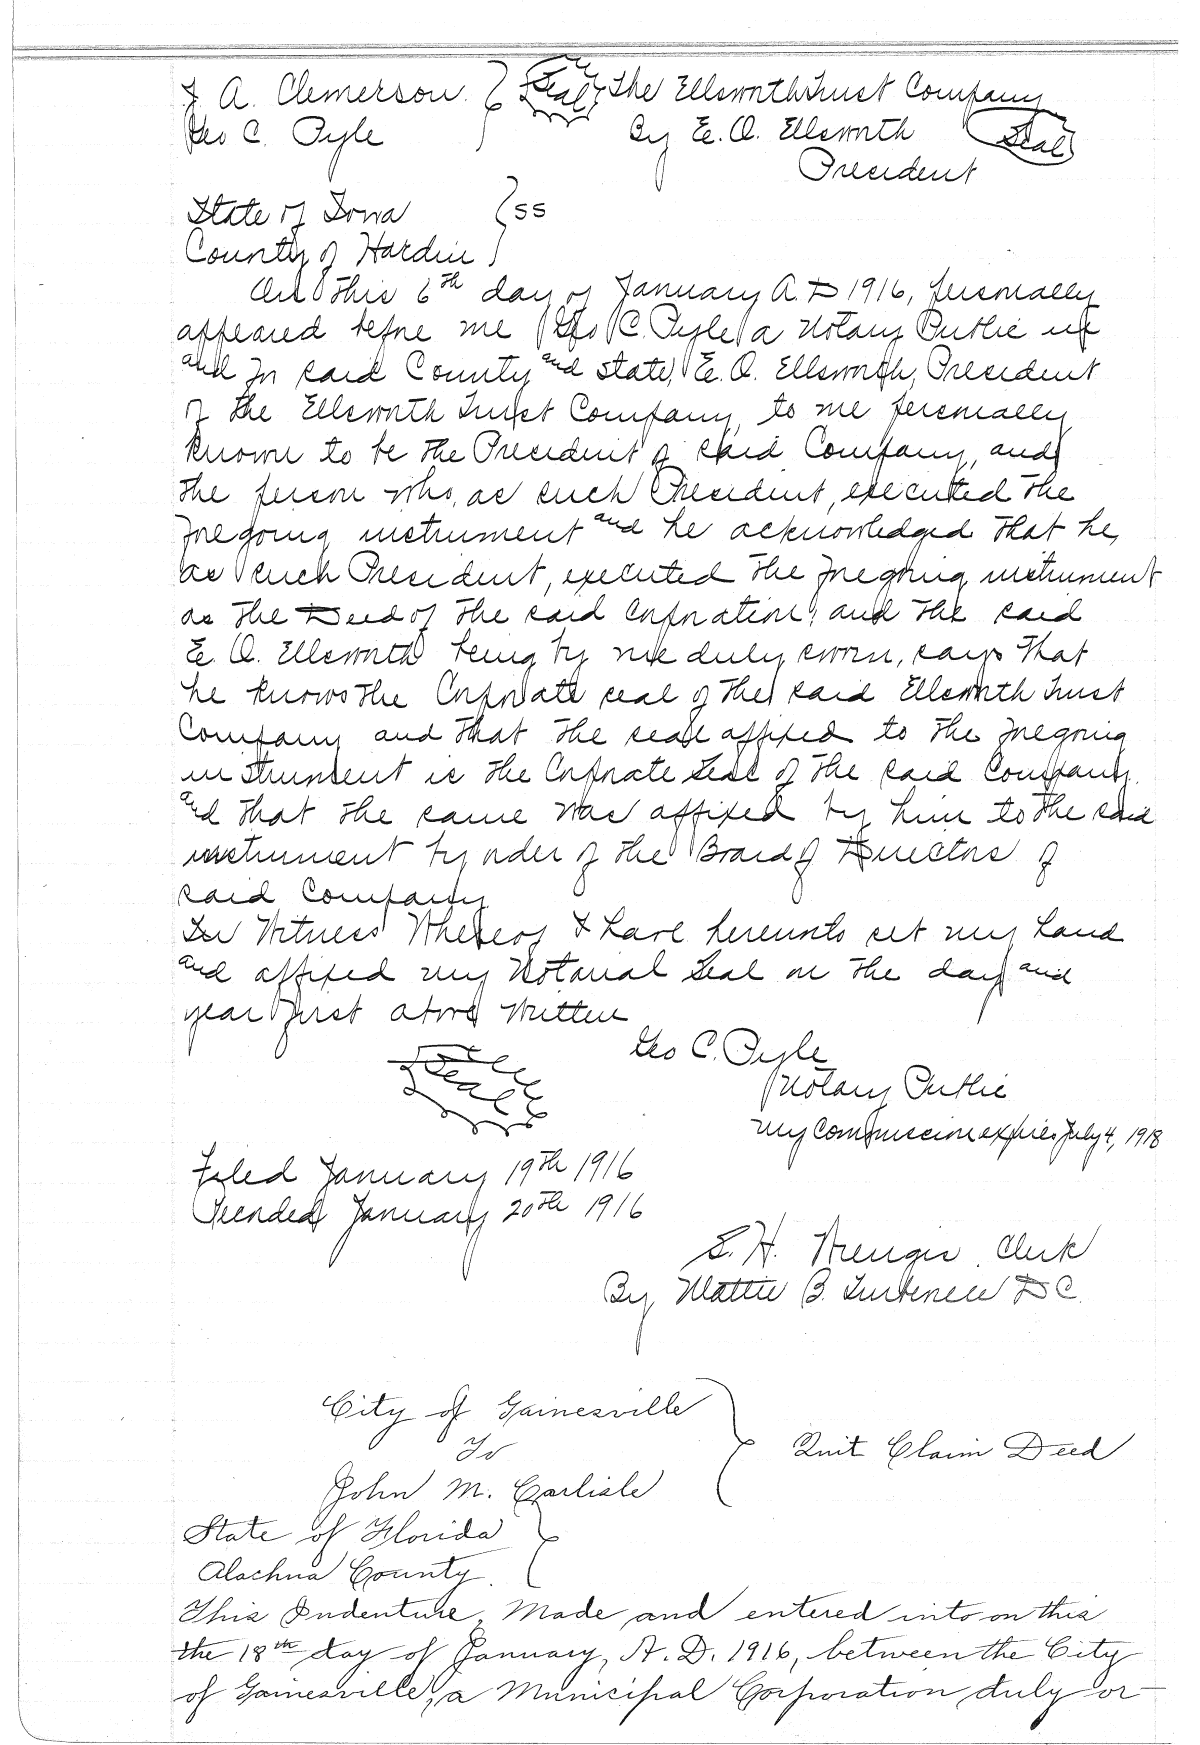 J A. Clemerson. Seal The Ellsworth Trust Company
Geo C. Pyle By E. O. Ellsworth Seal
President
State of Iowa ss
County of Hardin
On this 6th day of January A. D 1916, personally
appeared before me Geo C. Pyle a Notary Public in
and for said County and state, E. O. Ellsworth, President
of the Ellsworth Trust Company, to me personally
known to be the President of said Company, and
the person who, as such President, executed the
foregoing instrument and he acknowledged that he,
as such President, executed the foregoing instrument
as the Deed of the said Corporation; and the said
E. O. Ellsworth being by me duly sworn, says that
he knows the Corporate seal of the said Ellsworth Trust
Company and that the seal affixed to the foregoing
instrument is the Corporate Seal of the said Company.
and that the same was affixed by him to the said
instrument by order of the Board of Directors of
said Company
In Witness Whereof I have hereunto set my hand
and affixed my Notarial Seal on the day and
year first above written
Geo C. Pyle
Seal Notary Public
My Commission expires July 4, 1918
Filed January 19th 1916
Recorded January 20th 1916
S. H. Wienges Clerk
By Mattie B. D C.
City of Gainesville
To Quit Claim Deed
John M. Carlisle
State of Florida
Alachua County.
This Indenture, Made and entered into on this
the 18th day of January, A. D. 1916, between the City
of Gainesville, a Municipal Corporation duly or-